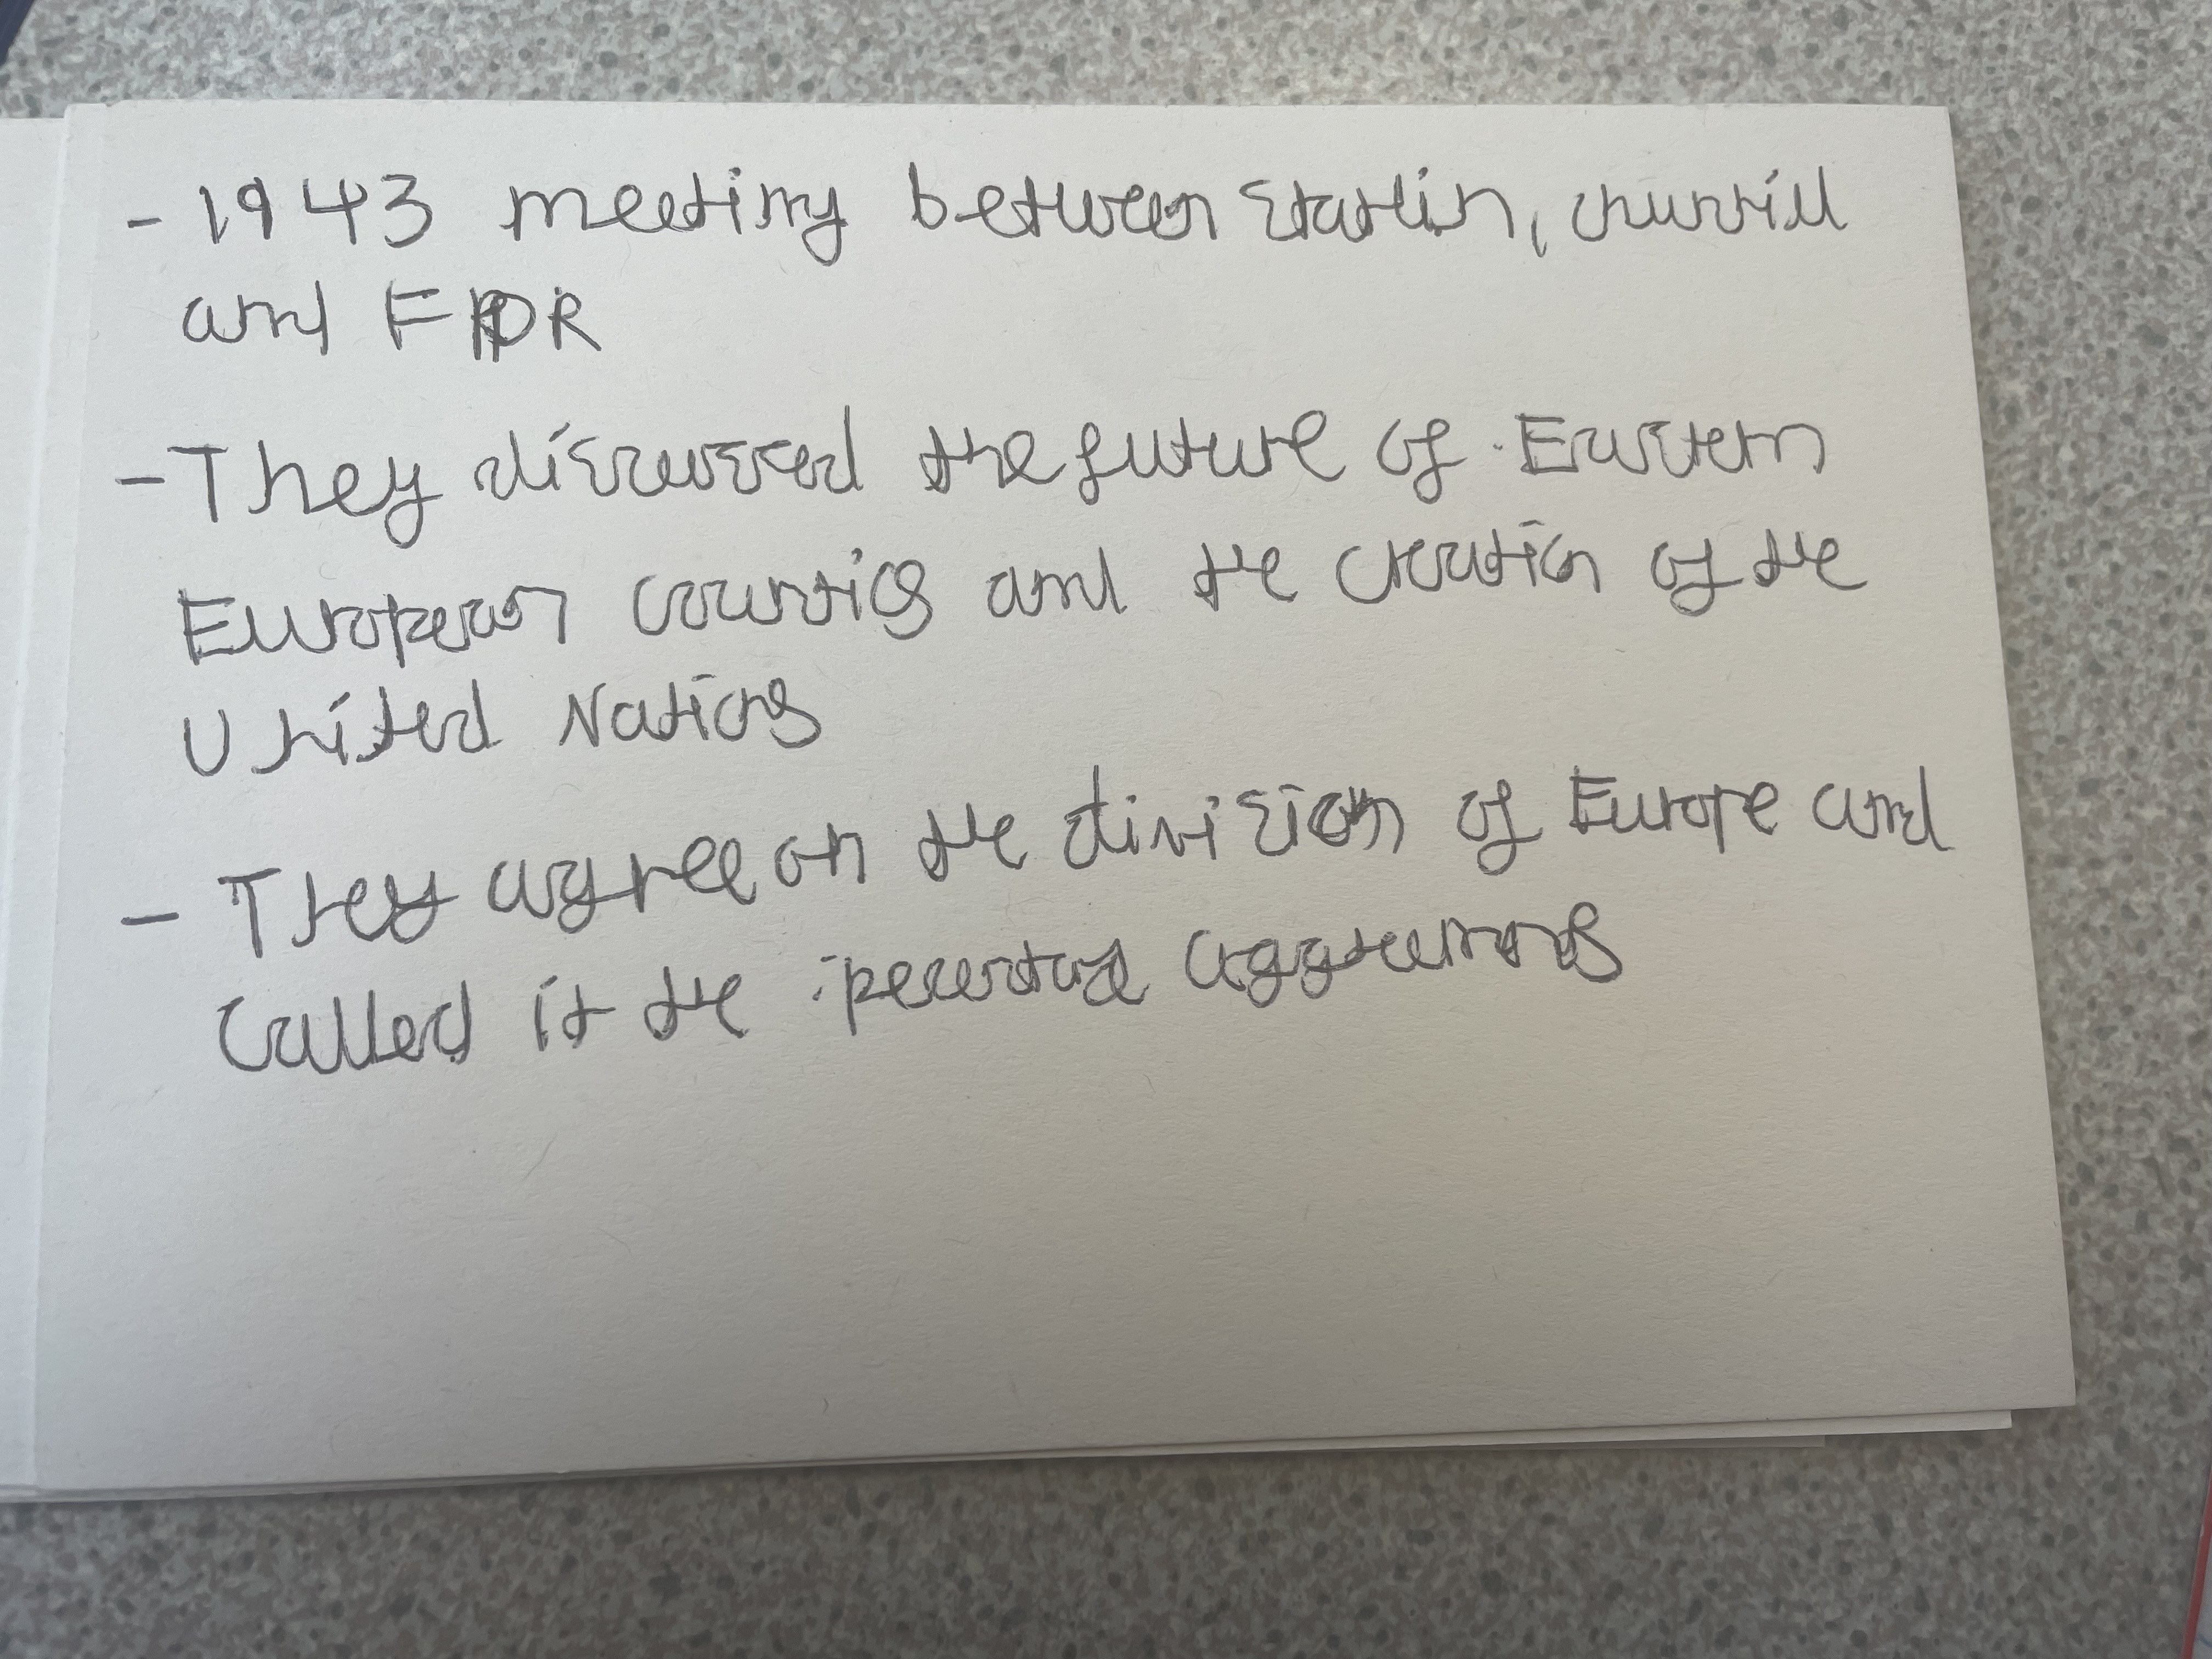 - 1943 meeting between stalin, churvill
and FDR
- They discussed the future of Eastern
European countries and the creation of the
United Nations
- They agree on the division of Europe and
called it the percentage aggreements